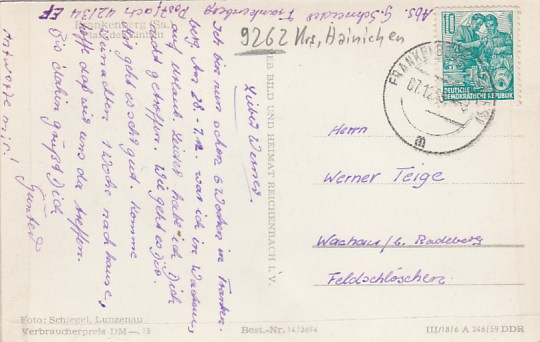 Abs. G. Schneider Frankenberg
Postfach 421/34 EF
Frankenberg (Sa.)
Platz der Einheit
9262 Krs. Hainichen
Lieber Werner.
Ich bin nun schon 6 Wochen in Franken-
berg. Am 28.-7.12. war ich in Wachau,
auf Urlaub. Leider habe ich Dich
nicht getroffen. Wie geht es Dir.
Mir geht es sehr gut. Komme
Weihnachten 1 Woche nach hause,
hoffe daß wir uns da treffen.
Bis dahin grüßt Dich
Günter
Antworte mir!
BILD UND HEIMAT REICHENBACH I. V.
10
DEUTSCHE
DEMOKRATISCHE REPUBLIK
FRANKENBERG
07.12
m
Herrn
Werner Teige
Wachau/b. Radeberg
Feldschlöschen
Foto: Schlegel, Lunzenau
Verbraucherpreis DM —.15
Best.-Nr. 14/3694
III/18/6 A 246/59 DDR